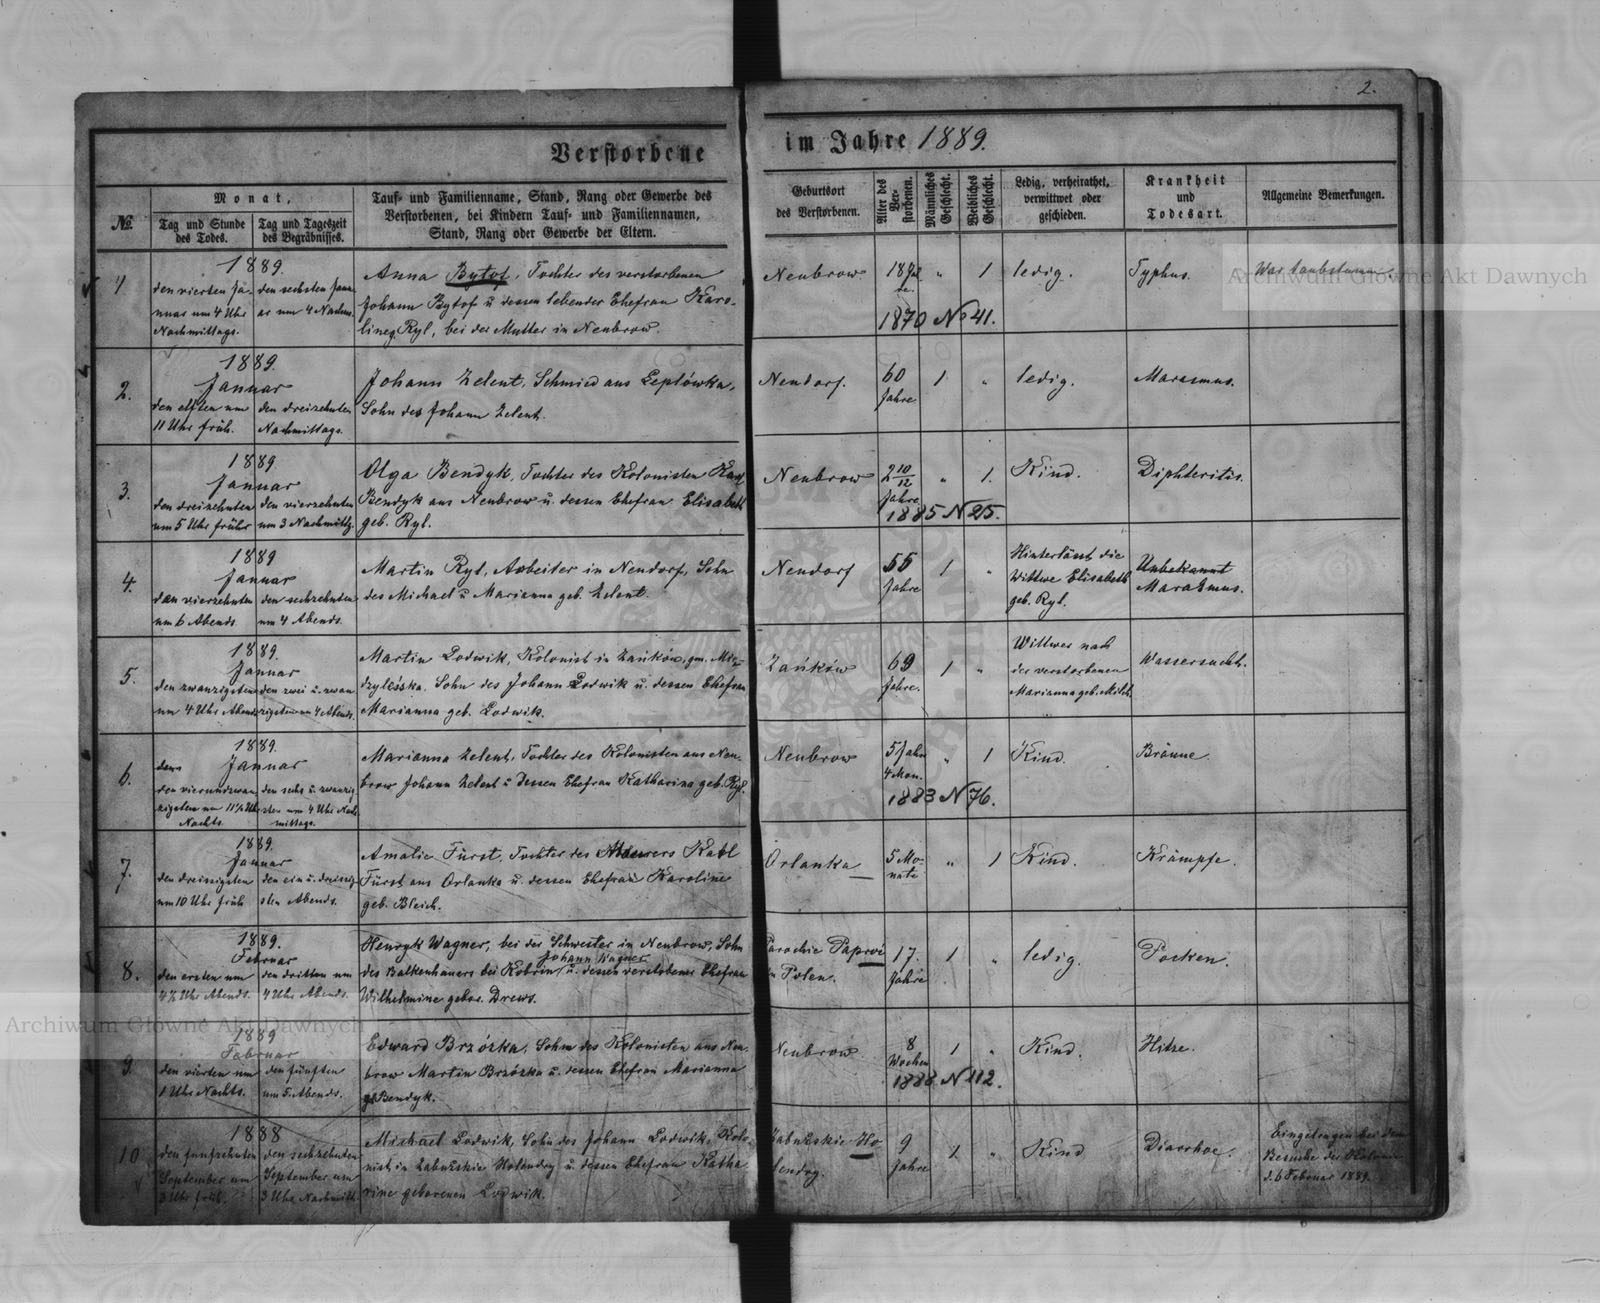 2.
Verstorbene im Jahre 1889.
№
Monat,
Tag und Stunde des Todes.
Tag und Tageszeit des Begräbnisses.
Tauf- und Familienname, Stand, Rang oder Gewerbe des
Verstorbenen, bei Kindern Tauf- und Familiennamen,
Stand, Rang oder Gewerbe der Eltern.
Geburtsort
des Verstorbenen.
Alter des Ver-
storbenen.
Männliches Geschlecht.
Weibliches Geschlecht.
Ledig, verheirathet,
verwittwet oder
geschieden.
Krankheit
und
Todesart.
Allgemeine Bemerkungen.
1
1889.
den vierten Ja-
nuar um 4 Uhr
Nachmittags.
den sechsten Janu-
ar um 4 Nachm.
Anna Bytof, Tochter des verstorbenen
Johann Bytof u dessen lebender Ehefrau Karo-
line Ryl, bei der Mutter in Neubrow.
Neubrow
18 Jah-
re.
" 1
ledig.
Typhus.
War taubstumm.
1870 № 41.
2.
1889.
Januar
den elften um
11 Uhr früh.
den dreizehnten
Nachmittags.
Johann Zelent, Schmied aus Leplówka,
Sohn des Johann Zelent.
Neudorf.
60
Jahre
1 "
ledig.
Marasmus.
3.
1889
Januar
den dreizehnten
um 5 Uhr frühr
den vierzehnten
um 3 Nachmittg.
Olga Bendyk, Tochter des Kolonisten Karl
Bendyk aus Neubrow u. dessen Ehefrau Elisabeth
geb. Ryl.
Neubrow
2 10/12
Jahre
" 1.
Kind.
Diphteritis.
1885 N 25.
4.
1889
Januar
den vierzehnten
um 6 Abends
den sechzehnten
um 4 Abends.
Martin Ryl, Arbeiter in Neudorf, Sohn
des Michael u Marianna geb. Zelent.
Neudorf
55
Jahre
1 "
Hinterlässt die
Wittwe Elisabeth
geb. Ryl.
Unbekannt
Marasmus.
5.
1889.
Januar
den zwanzigsten
um 4 Uhr Abends
den zwei u. zwan
zigsten um 4 Abends.
Martin Lodwik, Kolonist in Zańków, gm. Mię-
dzyleśska. Sohn des Johann Lodwik u. dessen Ehefrau
Marianna geb. Lodwik.
Zańków
69
Jahre.
1 "
Wittwer nach
der verstorbenen
Marianna geb. Milch.
Wassersucht.
6.
1889.
Januar
den vierundzwan
zigsten um 11½ Uhr
Nachts.
den sechs u. zwanzig
sten um 4 Uhr Nach
mittags.
Marianna Zelent, Tochter des Kolonisten aus Neu-
brow Johann Zelent u dessen Ehefrau Katharina geb. Ryl.
Neubrow
5 Jahr
4 Mon.
" 1
Kind.
Bräune
1883 N 76.
7.
1889.
Januar
den dreissigsten
um 10 Uhr früh
den ein u. dreissig
sten Abends.
Amalie Fürst, Tochter des Maurers Karl
Fürst aus Orlanka u. dessen Ehefrau Karoline
geb. Bleich.
Orlanka
5 Mo-
nate
" 1
Kind.
Krämpfe.
8.
1889.
Februar
den ersten um
4½ Uhr Abends.
den dritten um
4 Uhr Abends.
Henryk Wagner, bei der Schwester in Neubrow, Sohn
Johann Wagner
des Balkenhauers bei Kobrin u. dessen verstorbener Ehefrau
Wilhelmine gebor. Drews.
Parochie Paprwi
in Polen.
17.
Jahre
1 "
ledig.
Pocken.
9.
1889
Februar
den vierten um
1 Uhr Nachts.
den fünften
um 5. Abends.
Edward Brzóska, Sohn des Kolonisten aus Neu-
brow Martin Brzóska u. dessen Ehefrau Marianna
g. Bendyk.
Neubrow
8
Wochen
1 "
Kind.
Hitze.
1888 N 112.
10
1888
den funfzehnten
September um
3 Uhr früh.
den sechzehnten
September um
3 Uhr Nachmitt.
Michael Lodwik, Sohn des Johann Lodwik, Kolo-
nist in Zabużskie Holendry u. dessen Ehefrau Katha
rine geborenen Lodwik.
Zabużskie Ho
lendry.
9
Jahre
1. "
Kind
Diarrhoe.
Eingetragen bei dem
Besuche der Kolonie
d. 6 Februar 1889.
Archiwum Główne Akt Dawnych
Archiwum Główne Akt Dawnych